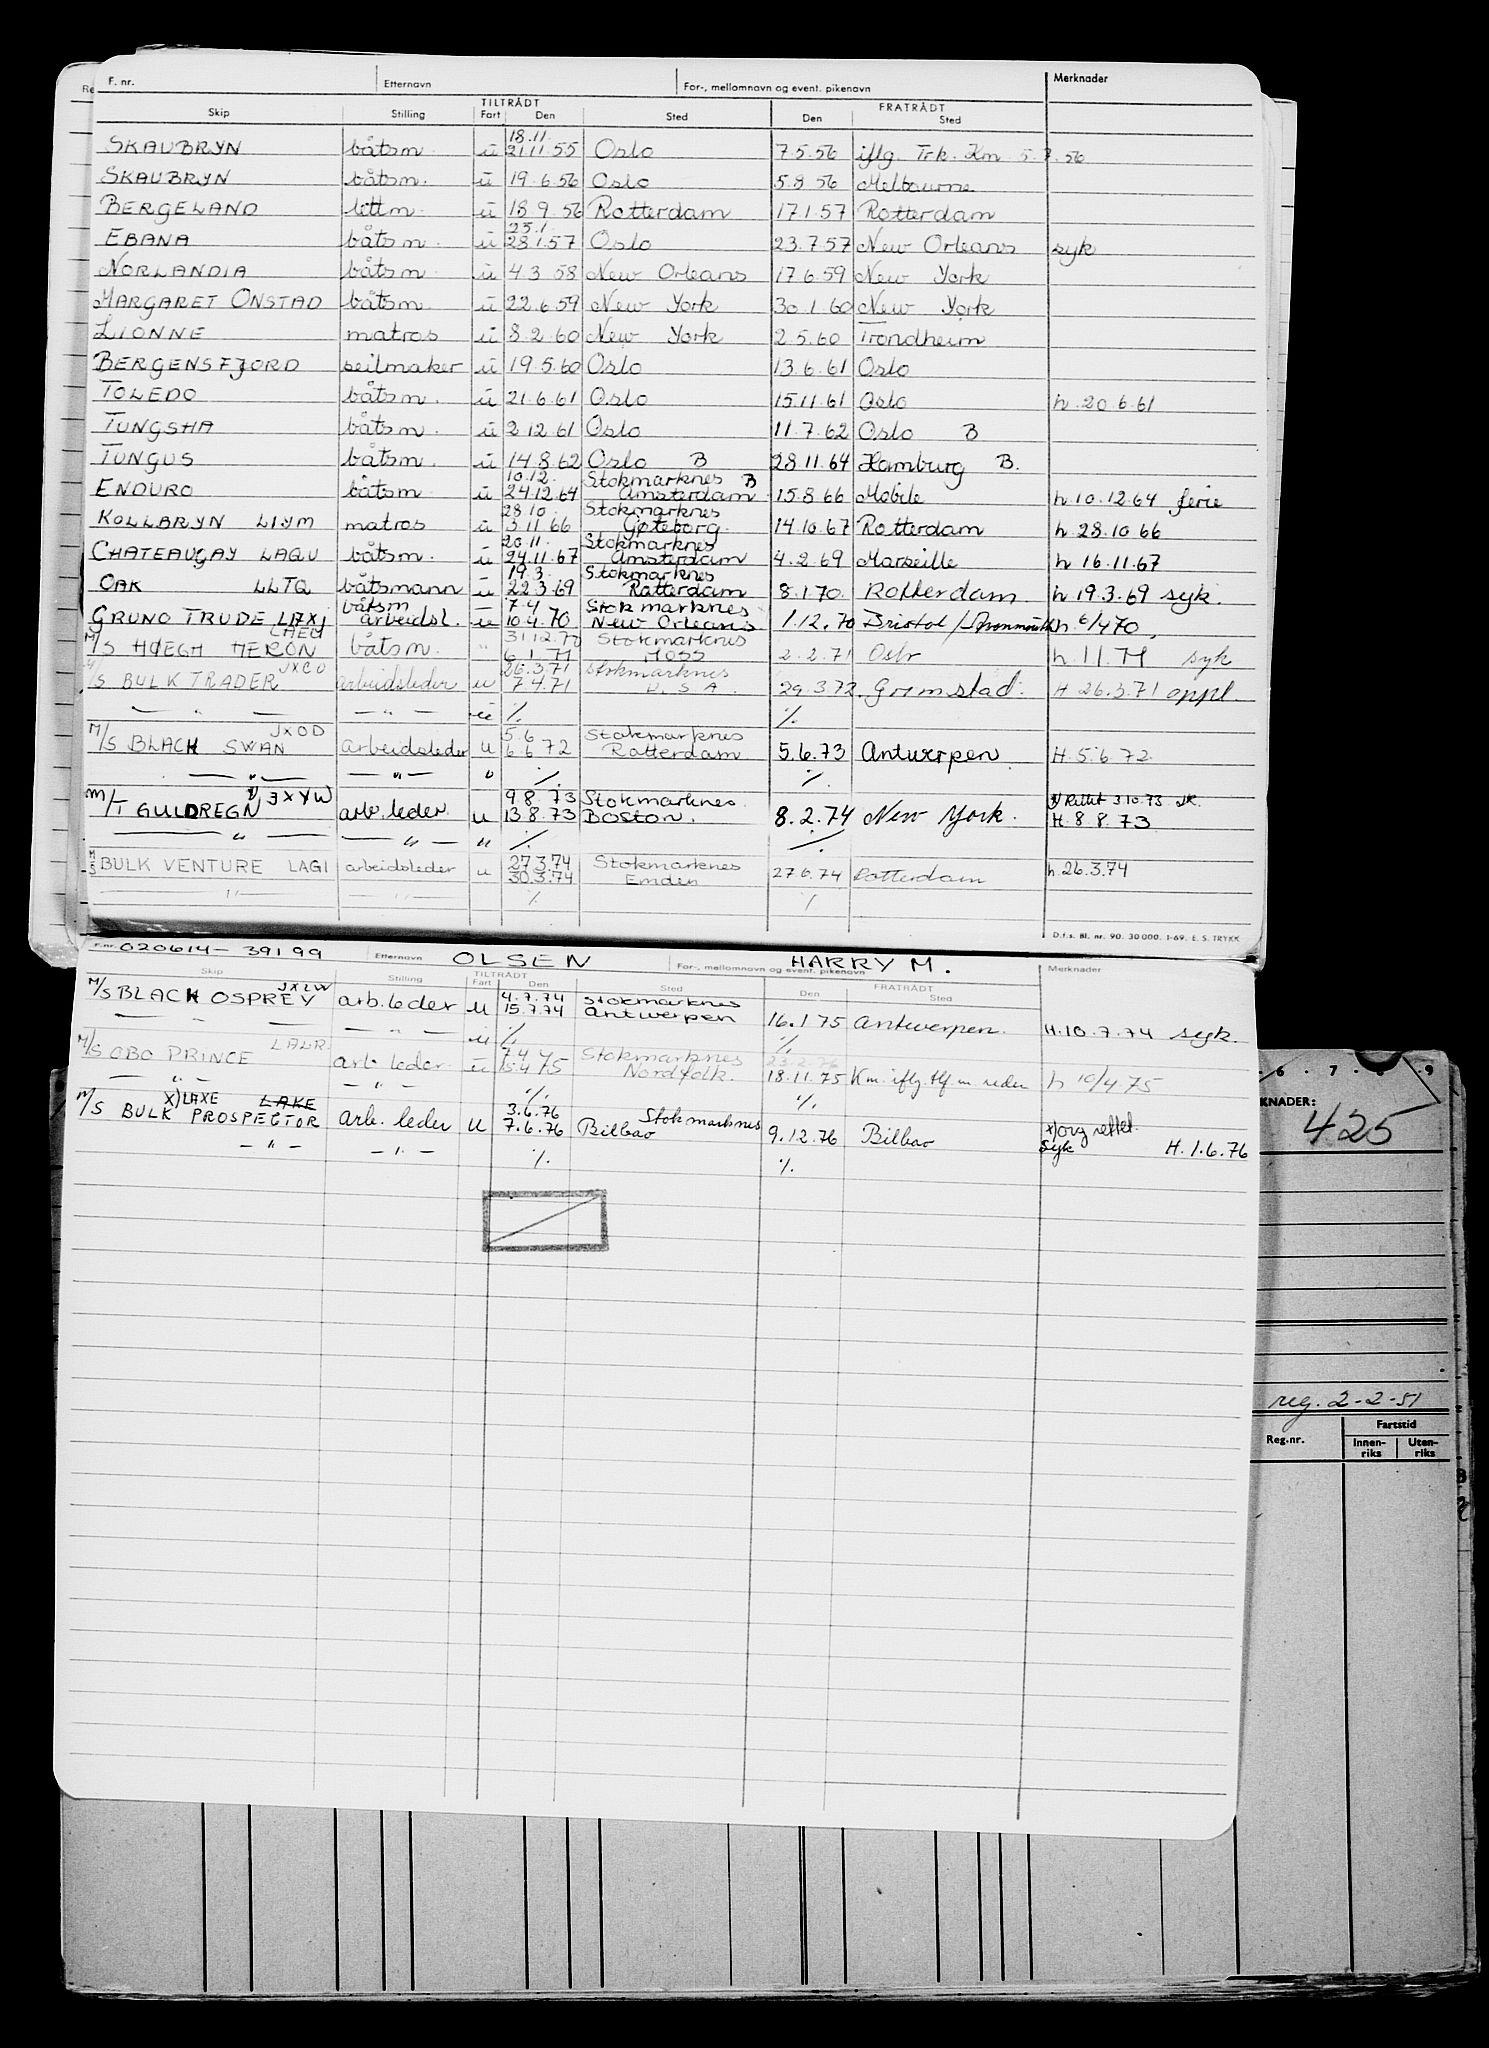 F. nr. Etternavn For-, mellomnavn og event. pikenavn Merknader
TILTRÅDT FRATRÅDT
Skip Stilling Fart Den Sted Den Sted
18.11.
SKAUBRYN båtsm. u 21.11.55 Oslo 7.5.56 iflg. Trk. Km. 5.7.56
SKAUBRYN båtsm. u 19.6.56 Oslo 5.8.56 Melbourne
BERGELAND lettm. u 18.9.56 Rotterdam 17.1.57 Rotterdam
25.1.
EBANA båtsm. u 28.1.57 Oslo 23.7.57 New Orleans syk
NORLANDIA båtsm. u 4.3.58 New Orleans 17.6.59 New York
MARGARET ONSTAD båtsm. u 22.6.59 New York 30.1.60 New York
LIONNE matros u 8.2.60 New York 2.5.60 Trondheim
BERGENSFJORD seilmaker u 19.5.60 Oslo 13.6.61 Oslo
TOLEDO båtsm. u 21.6.61 Oslo 15.11.61 Oslo h. 20.6.61
TUNGSHA båtsm. u 2.12.61 Oslo 11.7.62 Oslo B
TUNGUS båtsm. u 14.8.62 Oslo B 28.11.64 Hamburg B.
10.12. Stokmarknes B
ENDURO båtsm. u 24.12.64 Amsterdam 15.8.66 Mobile h. 10.12.64 ferie
28.10. Stokmarknes
KOLLBRYN LIYM matros u 3.11.66 Gøteborg. 14.10.67 Rotterdam h. 28.10.66
20.11. Stokmarknes
CHATEAUGAY LAQU båtsm. u 24.11.67 Amsterdam 4.2.69 Marseille h 16.11.67
19.3. Stokmarknes
OAK LLTQ båtsmann u 22.3.69 Rotterdam 8.1.70. Rotterdam h 19.3.69 syk.
båtsm 7.4 Stokmarknes
GRUNO TRUDE LAXJ arbeidsl. u 10.4.70 New Orleans 1.12.70 Bristol/Avonmouth h 6/4 70
LAEU 31.12.70 Stokmarknes
M/S HØEGH HERON båtsm. " 6.1.71 MOSS 2.2.71 Oslo h. 1.1.71 syk
JXCO 26.3.71 Stokmarknes
M/S BULK TRADER arbeidsleder u 7.4.71 U.S.A. 29.3.72. Grimstad. H 26.3.71 oppl.
— " — — " — u % %
JXOD 5.6 Stokmarknes
M/S BLACK SWAN arbeidsleder u 6.6.72 Rotterdam 5.6.73 Antwerpen H. 5.6.72.
— " — — " — " % %
x) JXYW 9.8.73 Stokmarknes. x) Rettet 3.10.73
M/T GULDREGN arb.leder. u 13.8.73 BOSTON. 8.2.74 New York. H. 8.8.73
— " — — " — " % %
27.3.74 Stokmarknes
M/S BULK VENTURE LAGI arbeidsleder u 30.3.74 Emden 27.6.74 Rotterdam h. 26.3.74
" — " — % %
D.f.s. Bl. nr. 90. 30 000. 1-69. E. S. TRYKK
F.nr. 020614 - 39199 Etternavn OLSEN For-, mellomnavn og event. pikenavn HARRY M. Merknader
TILTRÅDT FRATRÅDT
Skip Stilling Fart Den Sted Den Sted
JXLW 4.7.74 Stokmarknes
M/S BLACK OSPREY arb.leder u 15.7.74 Antwerpen 16.1.75 Antwerpen. H.10.7.74 syk.
— " — — " — u % %
LALR. 7.4 Stokmarknes 23.2.76
M/S OBO PRINCE arb. leder. u 15.4.75 Nordfolk. 18.11.75 Km. iflg. tlf. m. reder h 10/4.75
— " — — " — % %
x) LAXE LAKE 3.6.76 Stokmarknes x) org rettet.
M/S BULK PROSPECTOR arb. leder u 7.6.76 Bilbao 9.12.76 Bilbao Syk H.1.6.76
— " — — " — % %
6 . 7 . 8 . 9
KNADER:
425
reg. 2-2-51
Reg.nr. Fartstid
Innen-riks Uten-riks